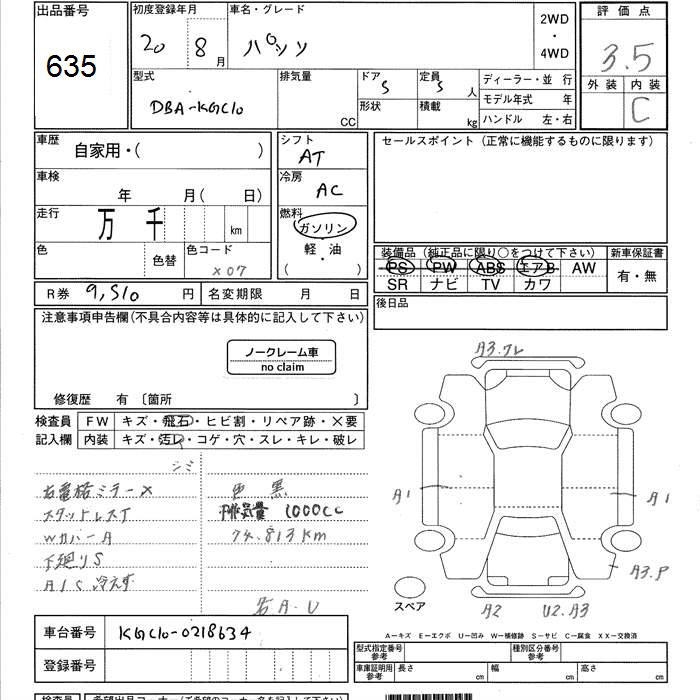 出品番号 初度登録年月 車名・グレード 評価点
635 20 8月 パッソ 2WD・4WD 3.5
外装 内装
C
型式 排気量 ドア 定員 ディーラー・並 行
DBA-KGC10 CC 5 5 人 モデル年式 年
形状 積載 kg ハンドル 左・右
車歴 シフト セールスポイント(正常に機能するものに限ります)
自家用・( ) AT
車検 冷房
年 月( 日) AC
走行 燃料
万 千 km ガソリン
軽・油
( )
色 色替 色コード
X07
装備品(純正品に限り○をつけて下さい) 新車保証書
PS PW ABS エアB AW 有・無
SR ナビ TV カワ
R券 9,510 円 名変期限 月 日 後日品
注意事項申告欄(不具合内容等は具体的に記入して下さい)
ノークレーム車
no claim
修復歴 有 〔箇所 〕
A3.ワレ
検査員 FW キズ・飛石・ヒビ割・リペア跡・×要
記入欄 内装 キズ・汚レ・コゲ・穴・スレ・キレ・破レ
シミ
右電格ミラー× 色 黒
スタットレスT 排気量 1000cc
WカバーA 74.813km
下廻りS
A/C 冷えず
右A.U
A1 A1
A3.P
スペア A2 U2.A3
車台番号 KGC10-0218634
登録番号
A―キズ E―エクボ U―凹み W―補修跡 S―サビ C―腐食 XX―交換済
型式指定番号 参考 種別区分番号 参考
車庫証明用 参考 長さ cm 幅 cm 高さ cm
検査員 希望出品コーナー(ご希望のコーナー名を記